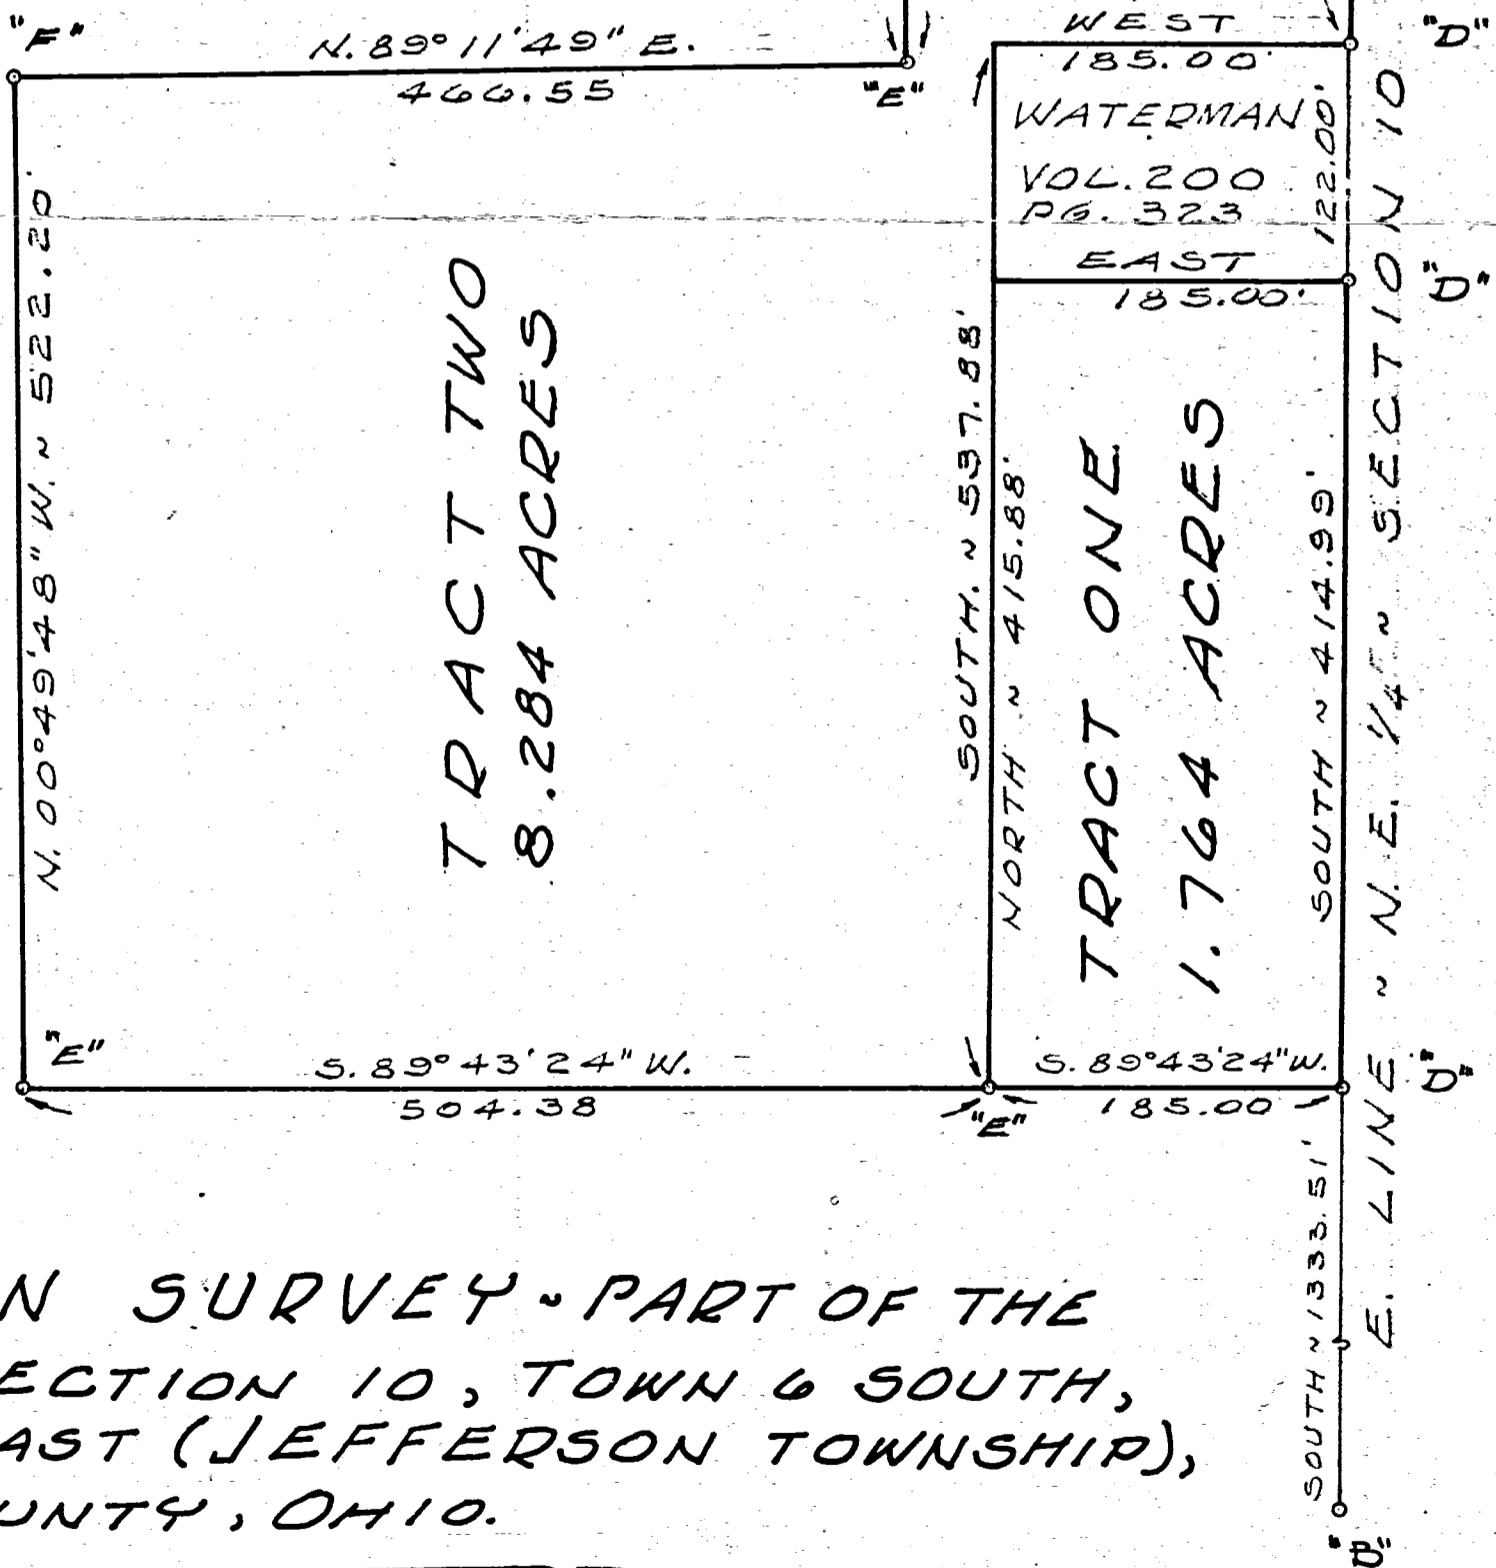 "F"
N. 89° 11' 49" E.
466.55
"E"
WEST
185.00'
"D"
WATERMAN
VOL. 200
PG. 323
122.00'
EAST
185.00'
"D"
N. 00° 49' 48" W. ~ 522.20'
TRACT TWO
8.284 ACRES
SOUTH. ~ 537.88'
NORTH ~ 415.88'
TRACT ONE
1.764 ACRES
SOUTH ~ 414.99'
E. LINE ~ N.E. 1/4 ~ SECTION 10
"E"
S. 89° 43' 24" W.
504.38
"E"
S. 89° 43' 24" W.
185.00
"D"
SOUTH ~ 1333.51'
"B"
N SURVEY ~ PART OF THE
ECTION 10, TOWN 6 SOUTH,
AST (JEFFERSON TOWNSHIP),
UNTY, OHIO.